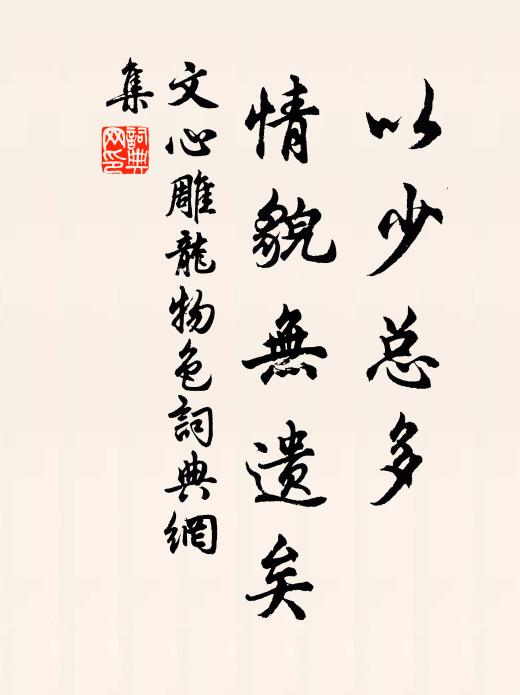 以少总多
情貌無遗矣
文心雕龍物色詞典網
集
詞典
网印